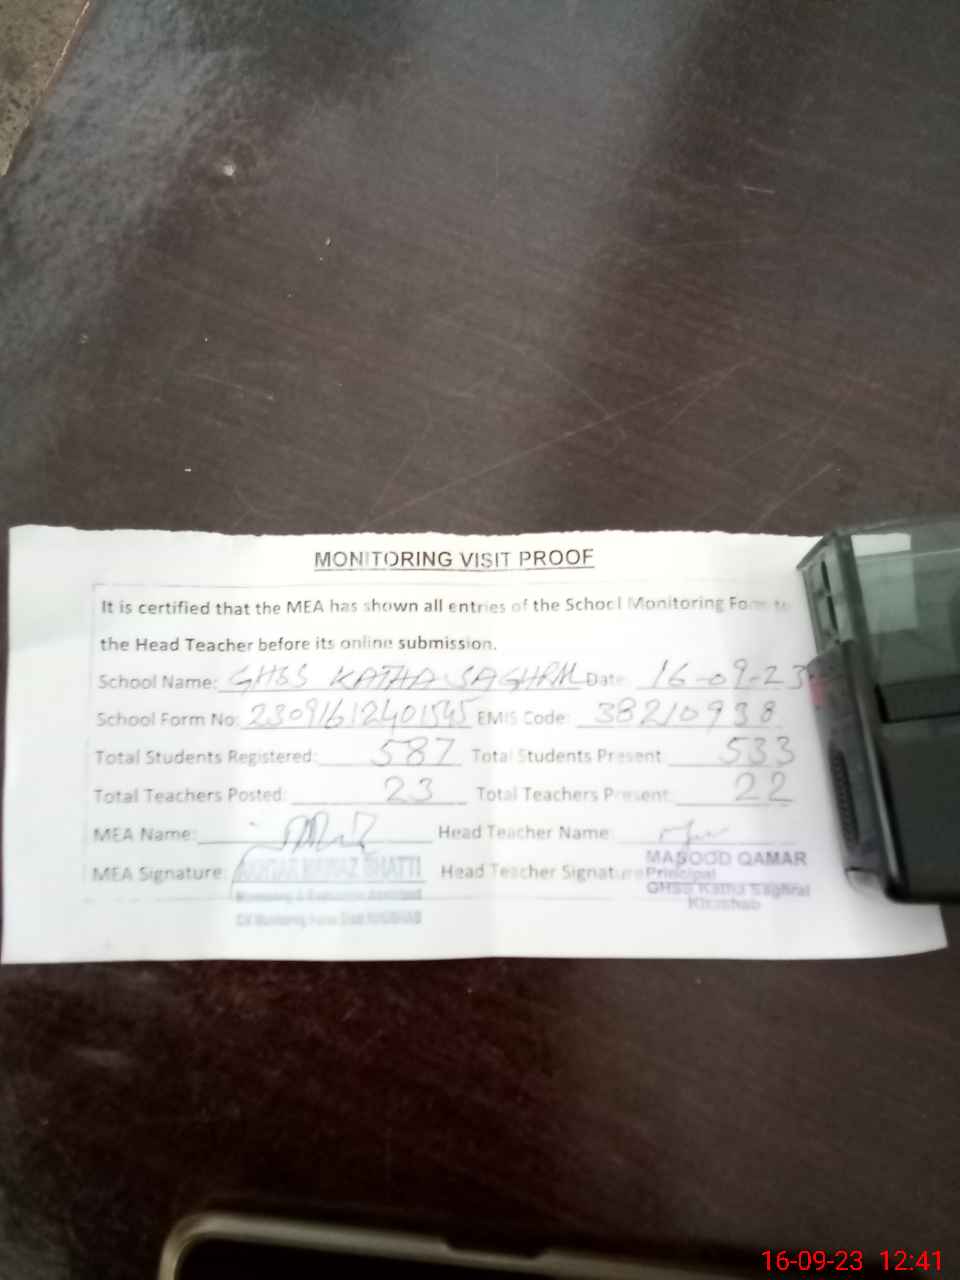 MONITORING VISIT PROOF
It is certified that the MEA has shown all entries of the School Monitoring Form to
the Head Teacher before its online submission.
School Name: GHSS KATHA SAGHRAL Date 16-09-23
School Form No: 23091612401545 EMIS Code: 38210938
Total Students Registered: 587 Total Students Present 533
Total Teachers Posted: 23 Total Teachers Present: 22
MEA Name: Head Teacher Name:
MEA Signature: NAWAZ BHATTI Head Teacher Signature MASOOD QAMAR
Principal
Monitoring & Evaluation Assistant GHSS Katha Saghral
Khushab
16-09-23 12:41